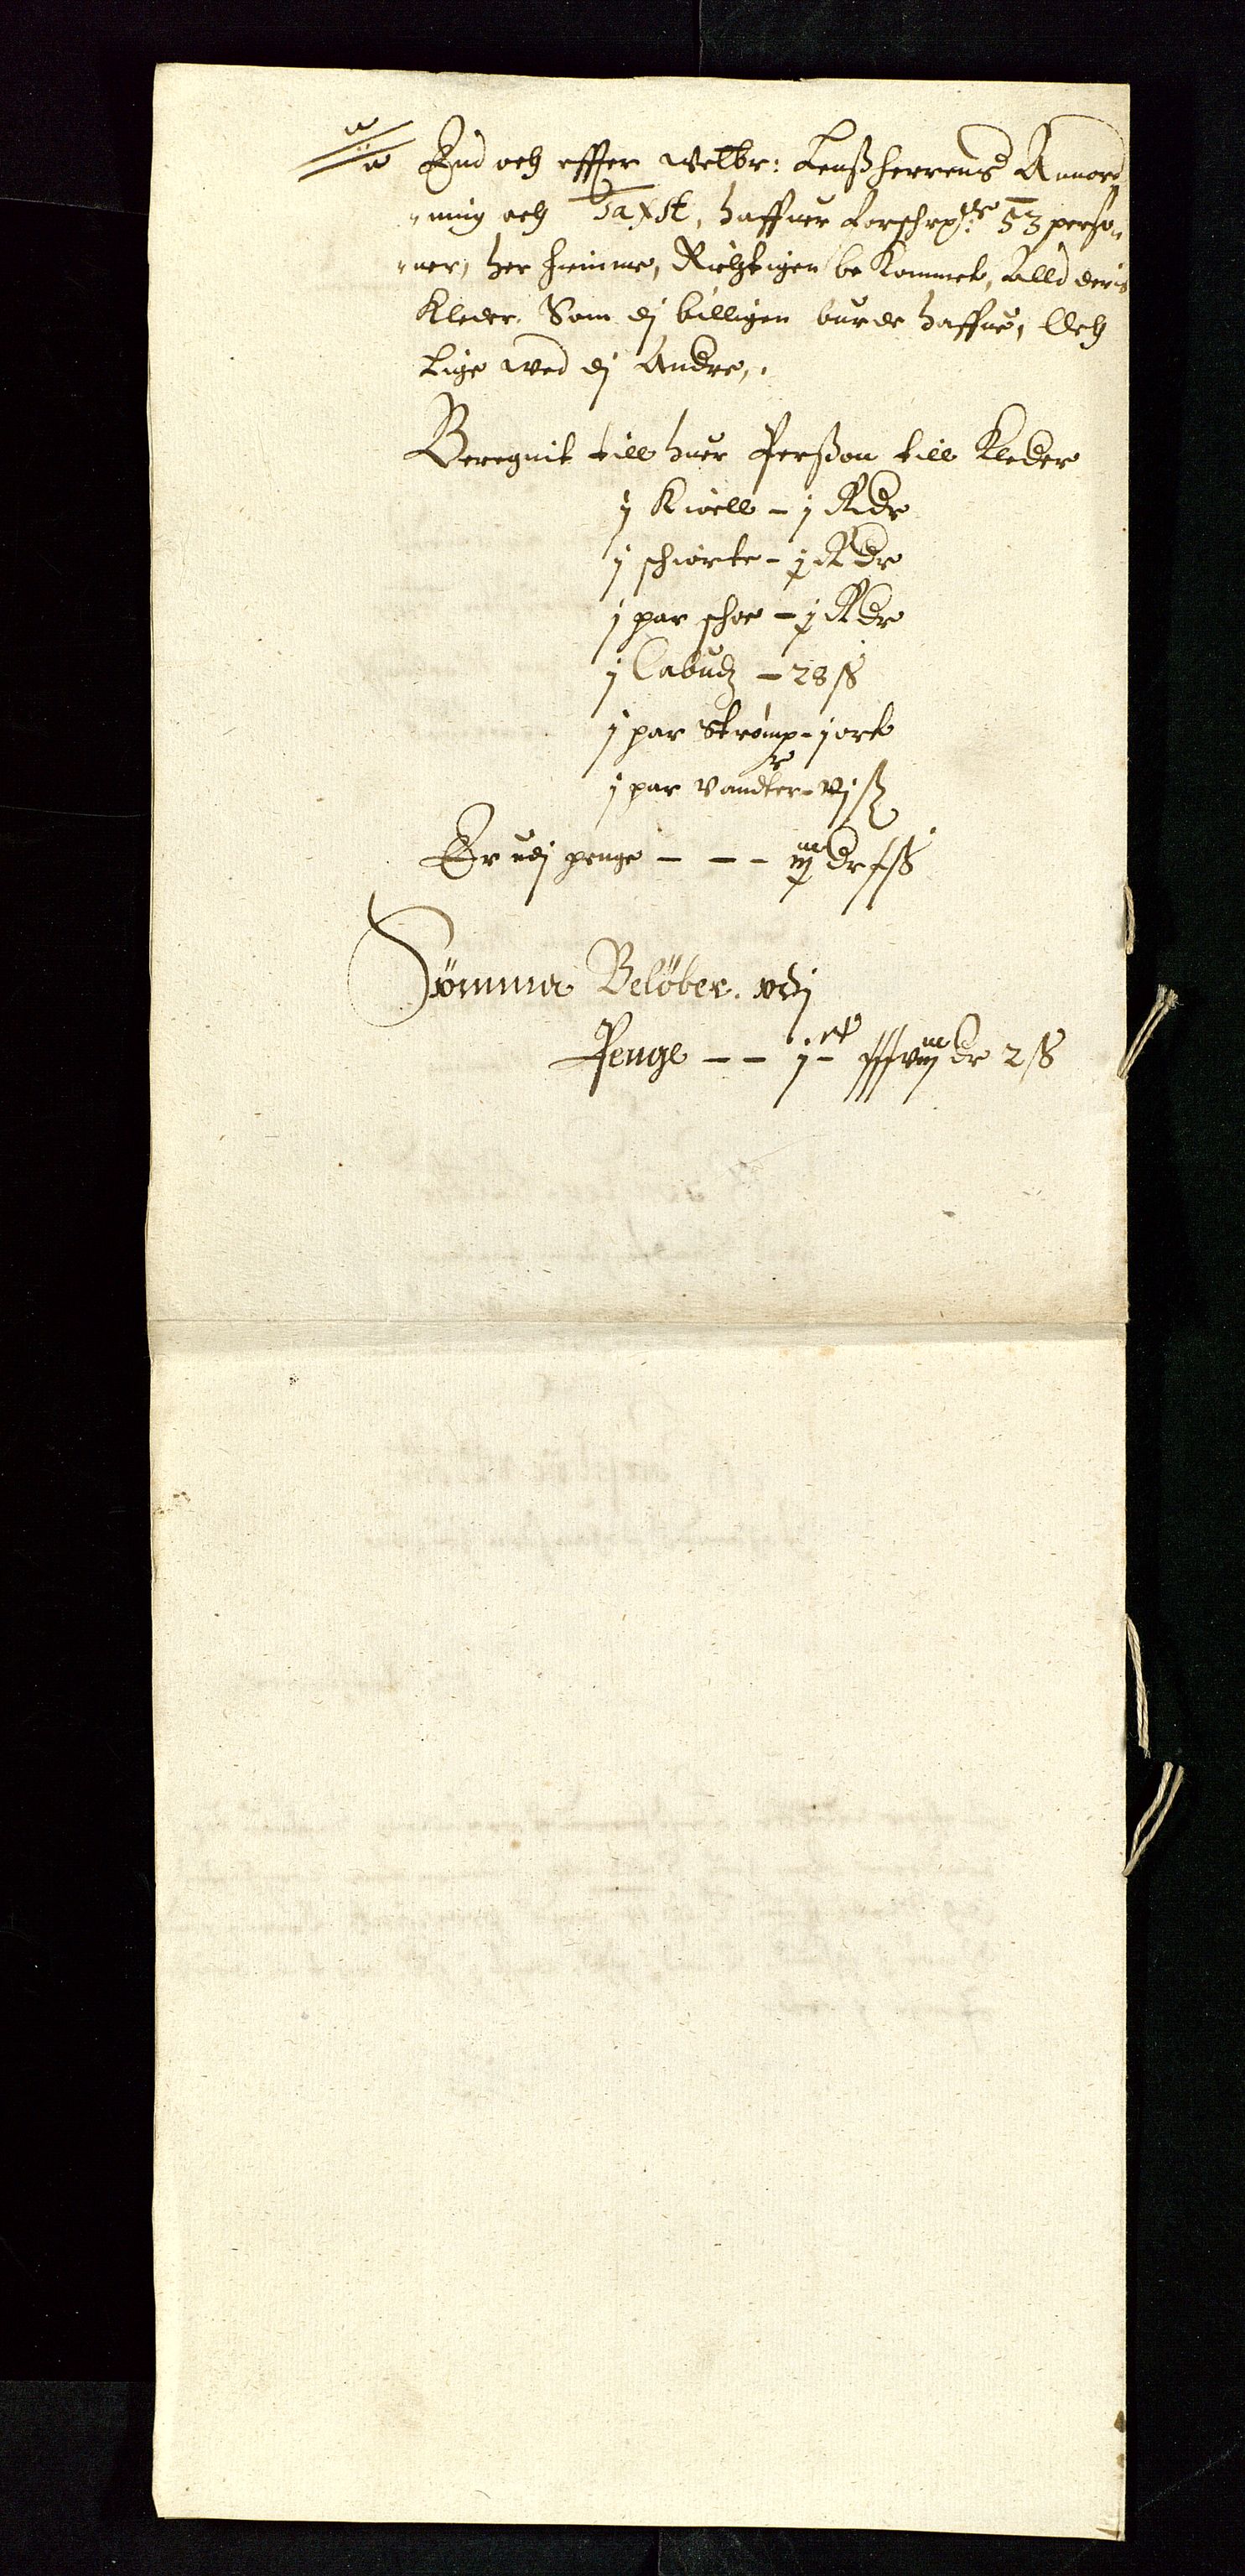 End och effter welbr: Lenßherrens Annord
"ning och Taxst, haffuer forschrp.ne 53 perso"
"ner, her hiemme, Richtigen be kommet, Alld deris
Kleder. Som dj billigen burde haffue, Och
Lige wed dj Andre,.
Beregnit till huer Perßon till Kleder
j Kioell - j Rdr
j schiorte - Rdr
j par schoe - Rdr
j Cabudz - 28 ß
j par Strømp - j ort
j par vandter - vj ß
Er udj penge - - - dr ß
Summa Beløber. vdj
Penge - - dr 2 ß